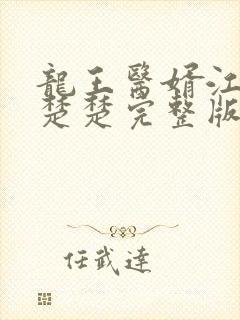 龍王醫婿江
楚楚完整版
任武達